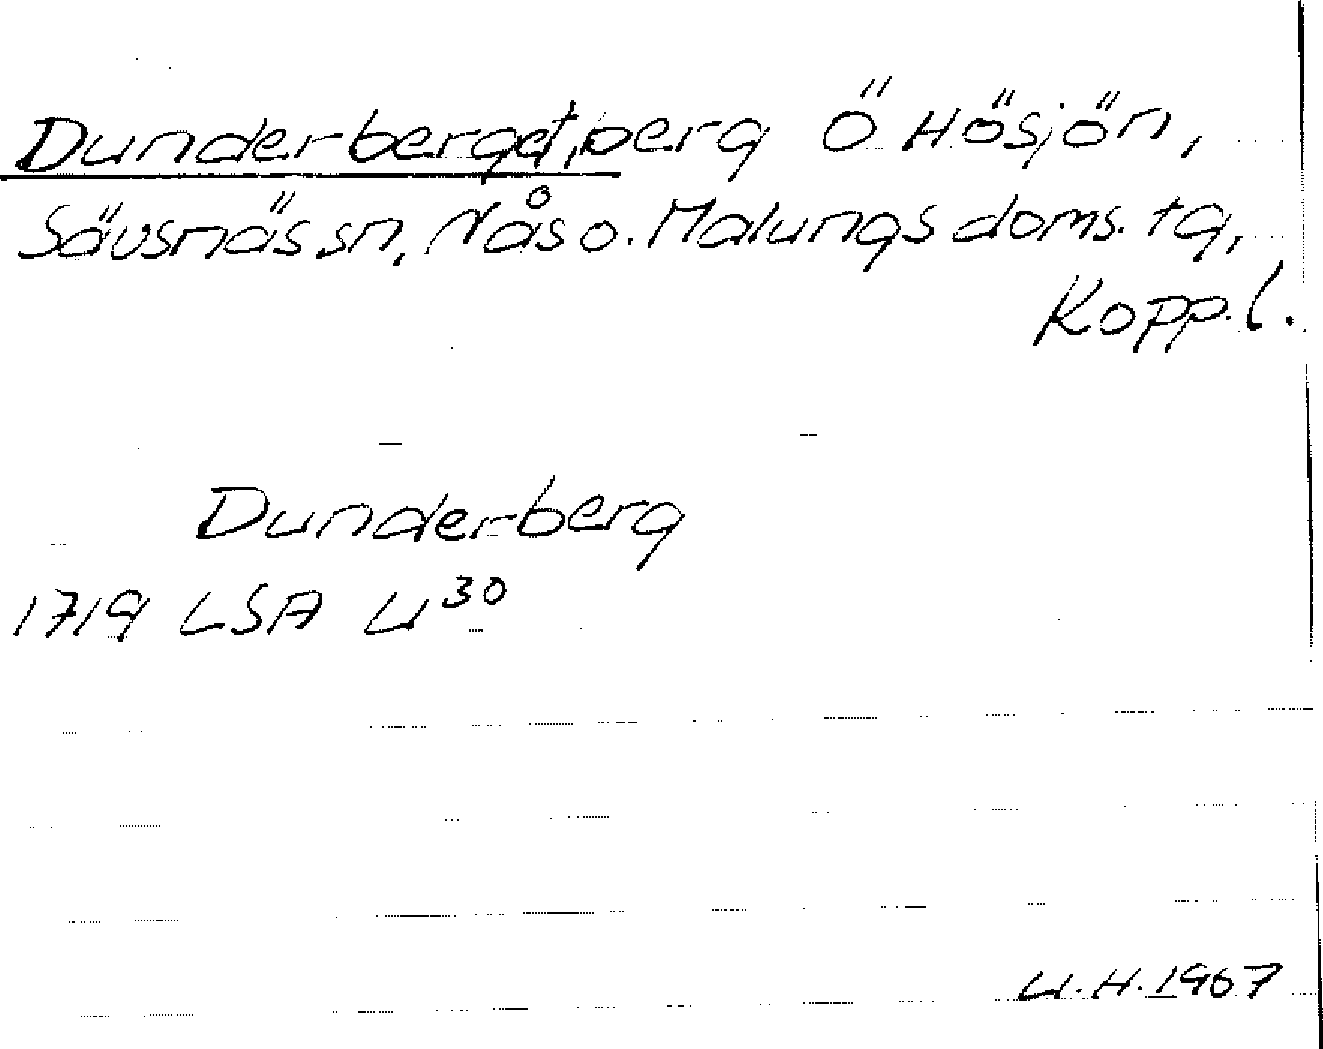 Dunderberget, berg Ö Hösjön,
Sävsnäs sn, Nås o. Malungs doms. tg,
Kopp. l.
Dunderberg
1719 LSA U30
U.H. 1967